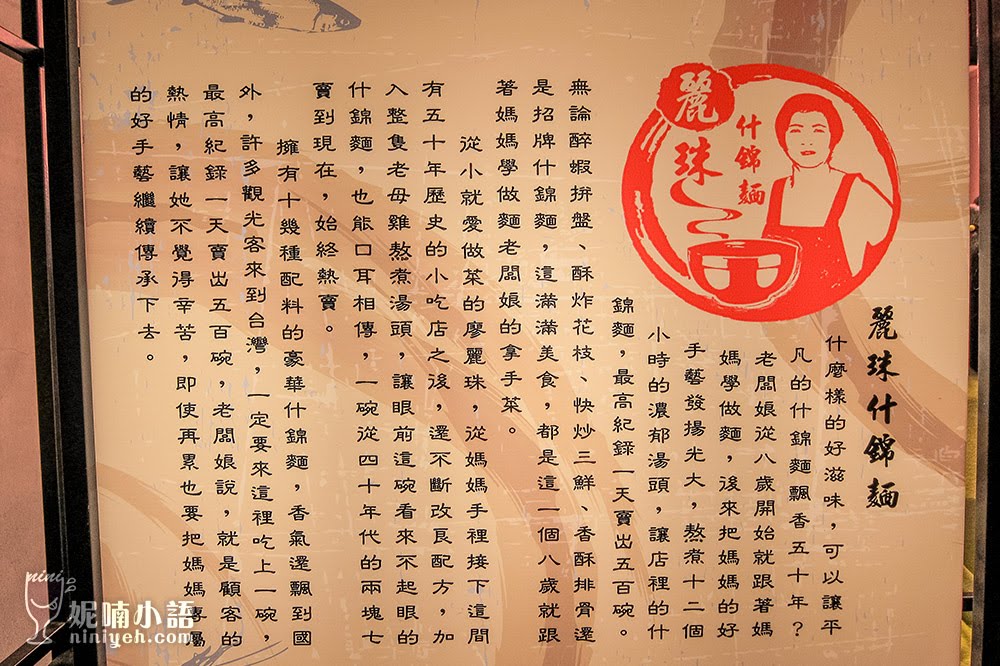 麗珠什錦麵
什麼樣的好滋味，可以讓平
凡的什錦麵飄香五十年？
老闆娘從八歲開始就跟著媽
媽學做麵，後來把媽媽的好
手藝發揚光大，熬煮十二個
小時的濃郁湯頭，讓店裡的什
錦麵，最高紀錄一天賣出五百碗。
無論醉蝦拼盤、酥炸花枝、快炒三鮮、香酥排骨還
是招牌什錦麵，這滿滿美食，都是這一個八歲就跟
著媽媽學做麵老闆娘的拿手菜。
從小就愛做菜的廖麗珠，從媽媽手裡接下這間
有五十年歷史的小吃店之後，還不斷改良配方，加
入整隻老母雞熬煮湯頭，讓眼前這碗看來不起眼的
什錦麵，也能口耳相傳，一碗從四十年代的兩塊七
賣到現在，始終熱賣。
擁有十幾種配料的豪華什錦麵，香氣還飄到國
外，許多觀光客來到台灣，一定要來這裡吃上一碗，
最高紀錄一天賣出五百碗，老闆娘說，就是顧客的
熱情，讓她不覺得辛苦，即使再累也要把媽媽專屬
的好手藝繼續傳承下去。
麗珠
什錦麵
nini
妮喃小語
niniyeh.com